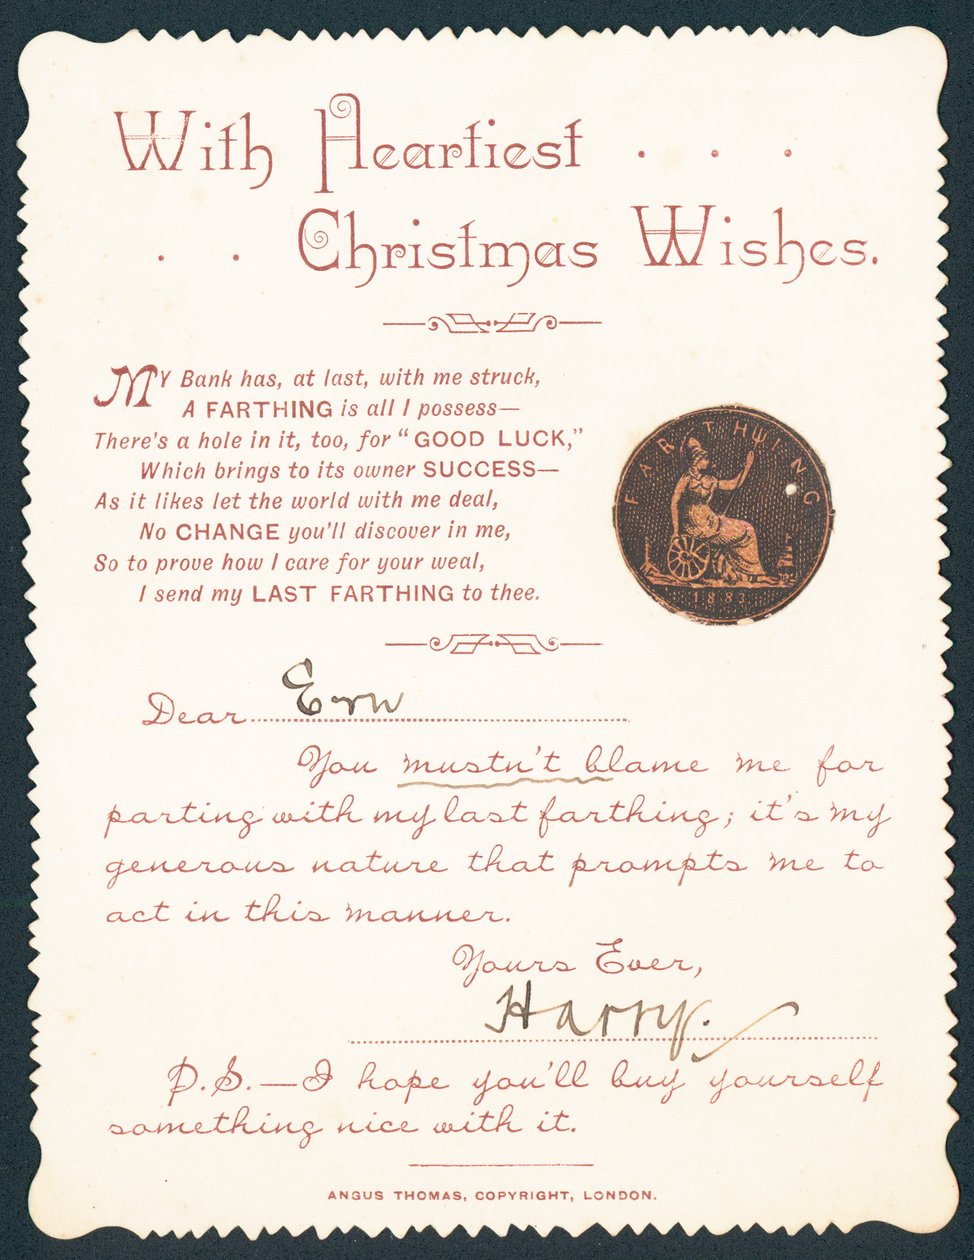 With Heartiest . . .
. . Christmas Wishes.
MY Bank has, at last, with me struck,
A FARTHING is all I possess—
There's a hole in it, too, for "GOOD LUCK,"
Which brings to its owner SUCCESS—
As it likes let the world with me deal,
No CHANGE you'll discover in me,
So to prove how I care for your weal,
I send my LAST FARTHING to thee.
FARTHING
1883
Dear Ern
You mustn't blame me for
parting with my last farthing; it's my
generous nature that prompts me to
act in this manner.
Yours Ever,
Harry.
P.S.—I hope you'll buy yourself
something nice with it.
ANGUS THOMAS, COPYRIGHT, LONDON.